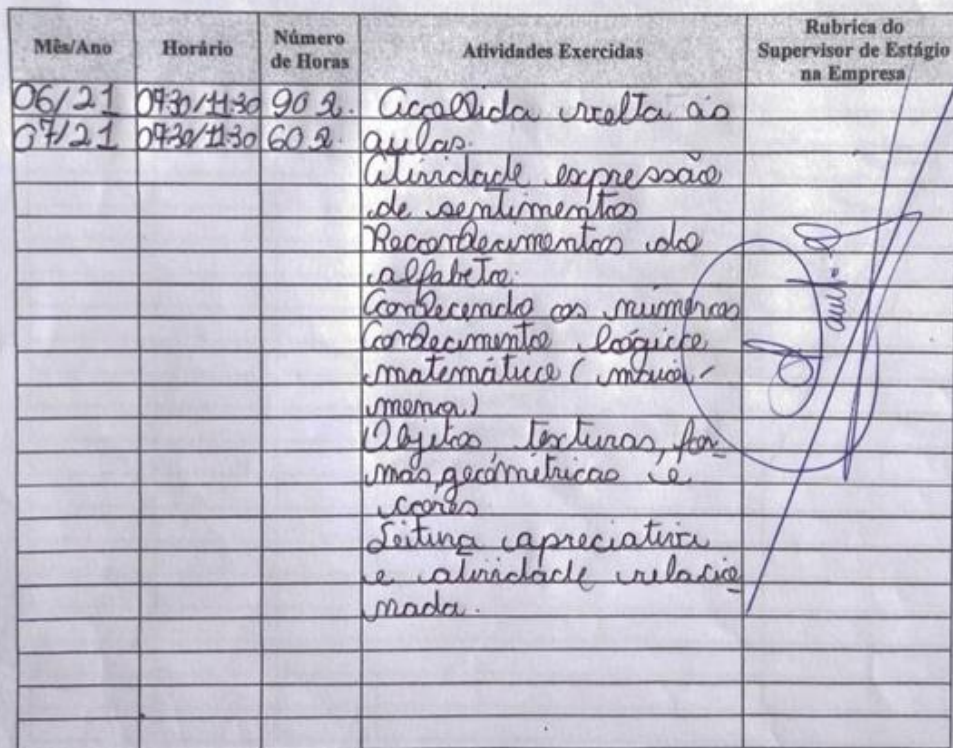 Mês/Ano Horário Número de Horas Atividades Exercidas Rubrica do Supervisor de Estágio na Empresa
06/21 07:30/11:30 90 h. Acolhida volta ás
07/21 07:30/11:30 60 h. aulas.
Atividade expressão
de sentimentos
Reconhecimentos do
alfabeto.
Conhecendo os números
Conhecimento lógico
matemático (maior-
menor)
Objetos, texturas, for-
mas, geométricas e
cores
Leitura apreciativa
e atividade relacio
nada.